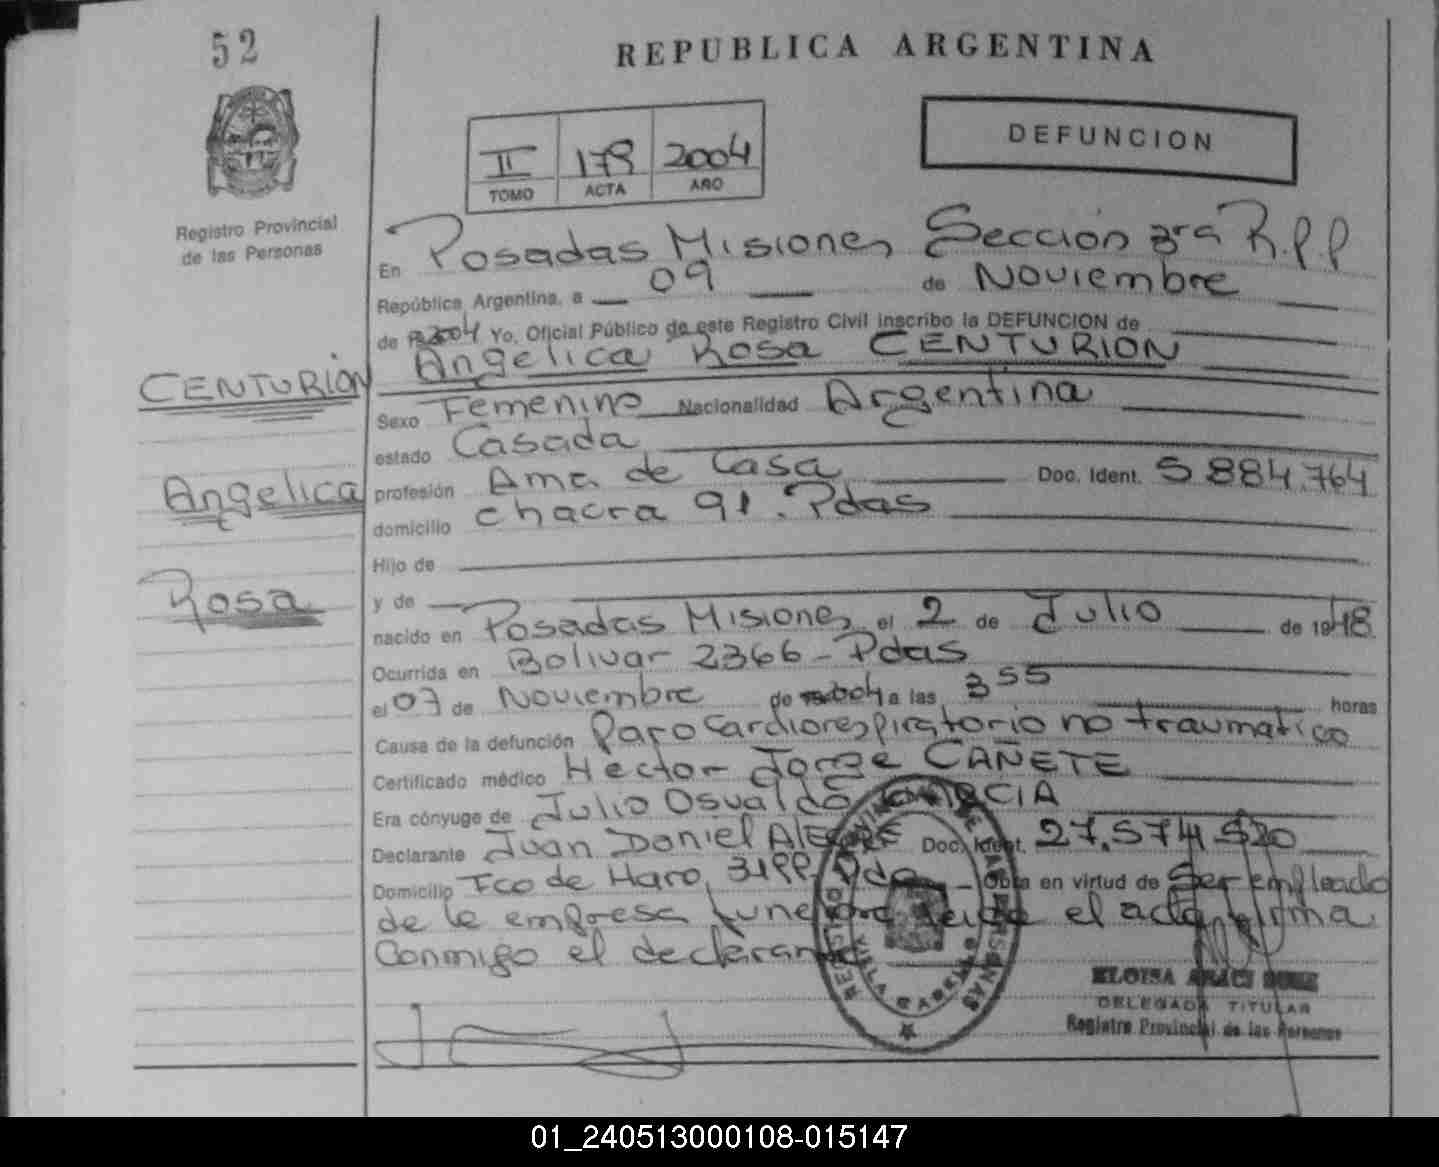 52
REPUBLICA ARGENTINA
DEFUNCION
II 179 2004
TOMO ACTA AÑO
Registro Provincial
de las Personas
En Posadas Misiones Sección 3ra R.P.P
República Argentina, a 09 de Noviembre
de 2004 Yo, Oficial Público de este Registro Civil inscribo la DEFUNCION de
Angelica Rosa CENTURION
CENTURION
Angelica
Rosa
Sexo Femenino Nacionalidad Argentina
estado Casada
profesión Ama de Casa Doc. Ident. 5.884.764
domicilio chacra 91. Pdas
Hijo de
y de
nacido en Posadas Misiones el 2 de Julio de 1948
Ocurrida en Bolivar 2366 - Pdas
el 07 de Noviembre de 2004 a las 3 55 horas
Causa de la defunción Paro Cardiorespiratorio no traumatico
Certificado médico Hector Jorge CAÑETE
Era cónyuge de Julio Osvaldo
Declarante Juan Daniel Doc. Ident. 27.574.520
Domicilio Fco de Haro, Obra en virtud de Ser empleado
de la empresa el acta firma
Conmigo el declarante
ELOISA
DELEGADA TITULAR
Registro Provincial de las Personas
01_240513000108-015147